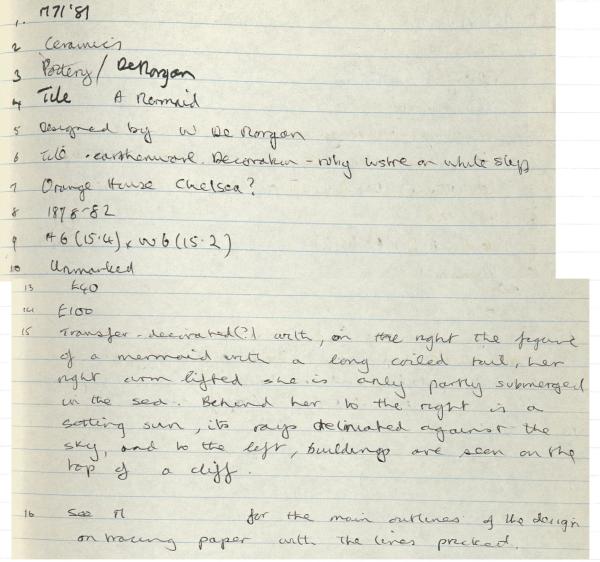 1. M71'81
2 Ceramics
3 Pottery / De Morgan
4 Tile A Mermaid
5 Designed by W De Morgan
6 Tile - earthenware. Decoration - ruby lustre on white slip
7 Orange House Chelsea?
8 1878-82
9 H6 (15.4) x W6 (15.2)
10 Unmarked
13 £40
14 £100
15 Transfer-decorated(?) with, on the right the figure
of a mermaid with a long coiled tail, her
right arm lifted she is only partly submerged
in the sea. Behind her to the right is a
setting sun, its rays delineated against the
sky, and to the left, buildings are seen on the
top of a cliff.
16 See M for the main outlines of the design
on tracing paper with the lines pricked.